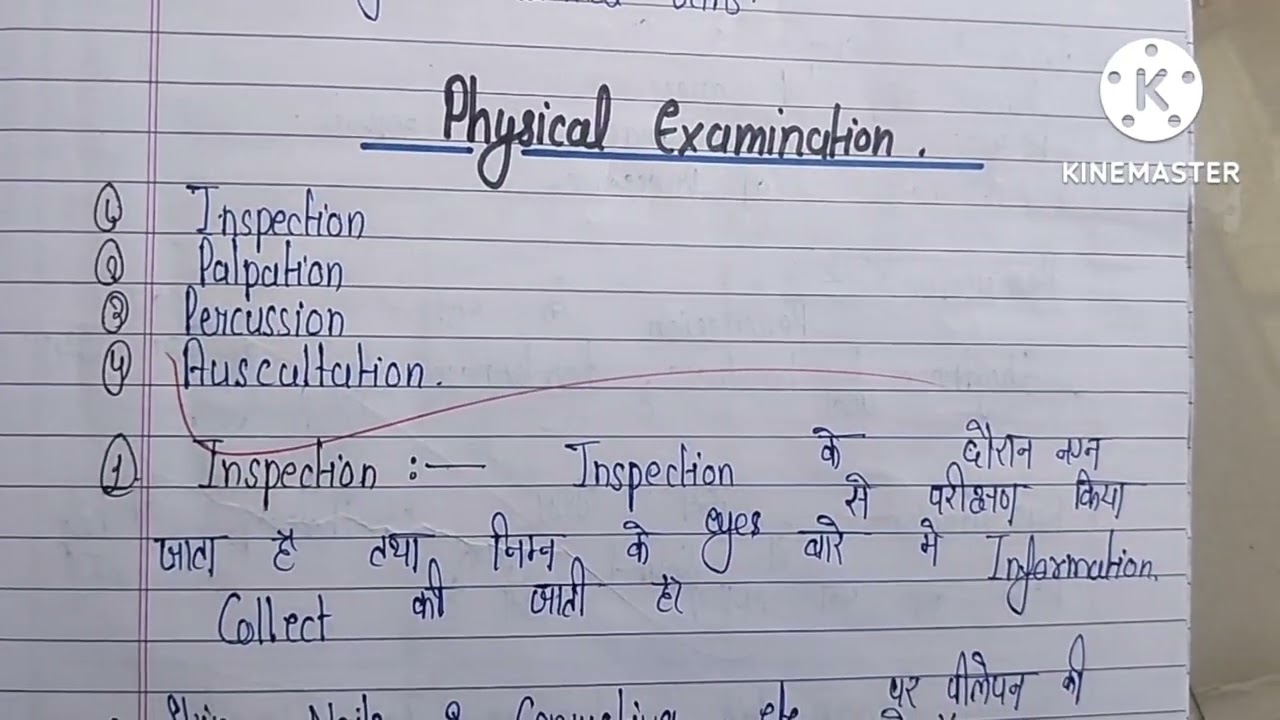 Physical Examination.
① Inspection
② Palpation
③ Percussion
④ Auscultation.
① Inspection :— Inspection के दौरान नग्न
eyes से परीक्षण किया
जाता है तथा निम्न के बारे मे Information
Collect की जाती है।
Nails & पर पीलेपन की
K
KINEMASTER